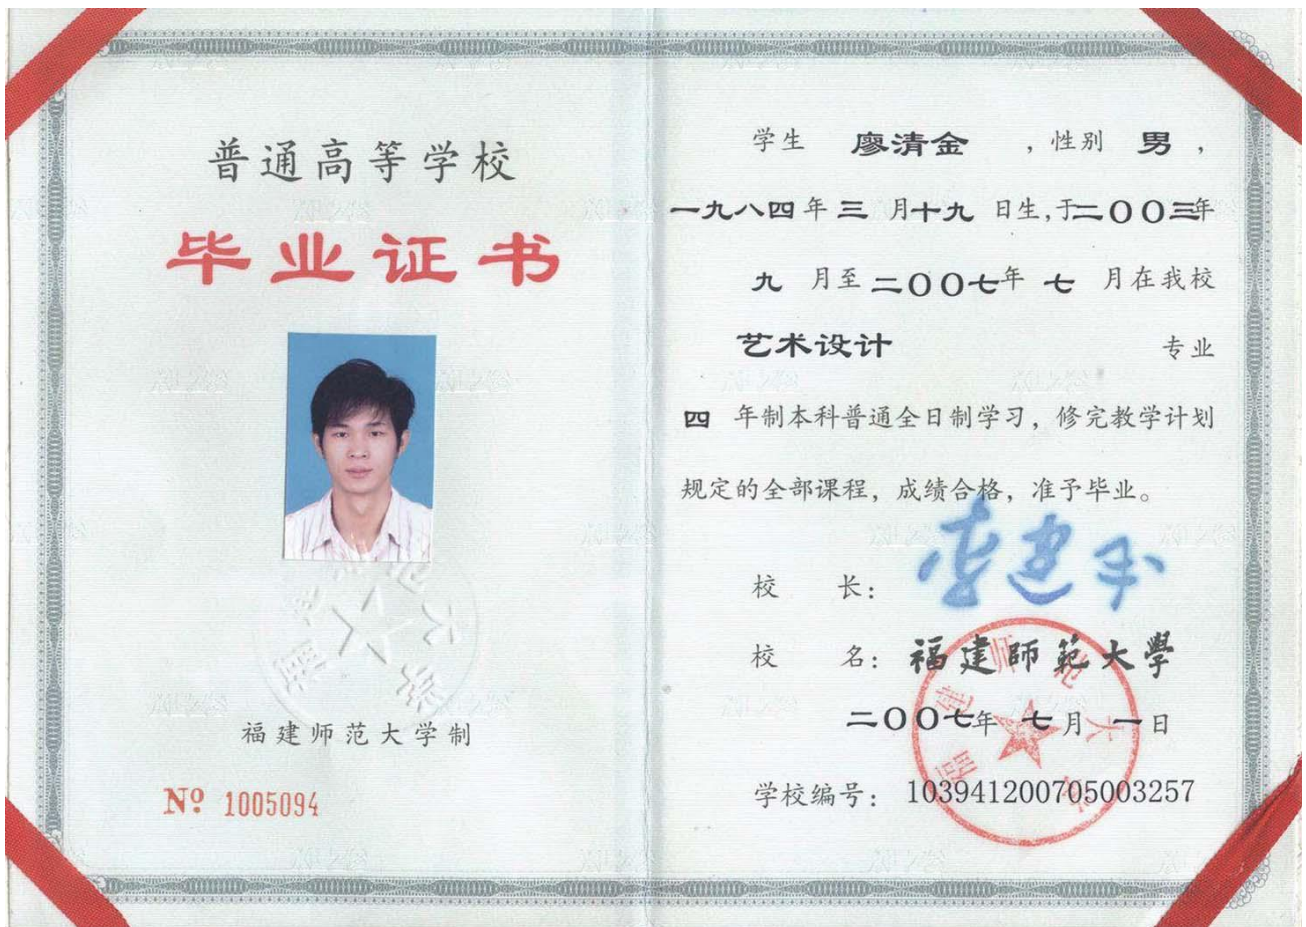 普通高等学校
毕业证书
福建师范大学制
Nº 1005094
学生 廖清金 ,性别 男 ,
一九八四年 三 月十九 日生,于二OO三年
九 月至 二OO七年 七 月在我校
艺术设计 专业
四 年制本科普通全日制学习，修完教学计划
规定的全部课程，成绩合格，准予毕业。
校 长:
校 名: 福建師範大學
二OO七年 七月 一日
学校编号: 103941200705003257
福建师范大学